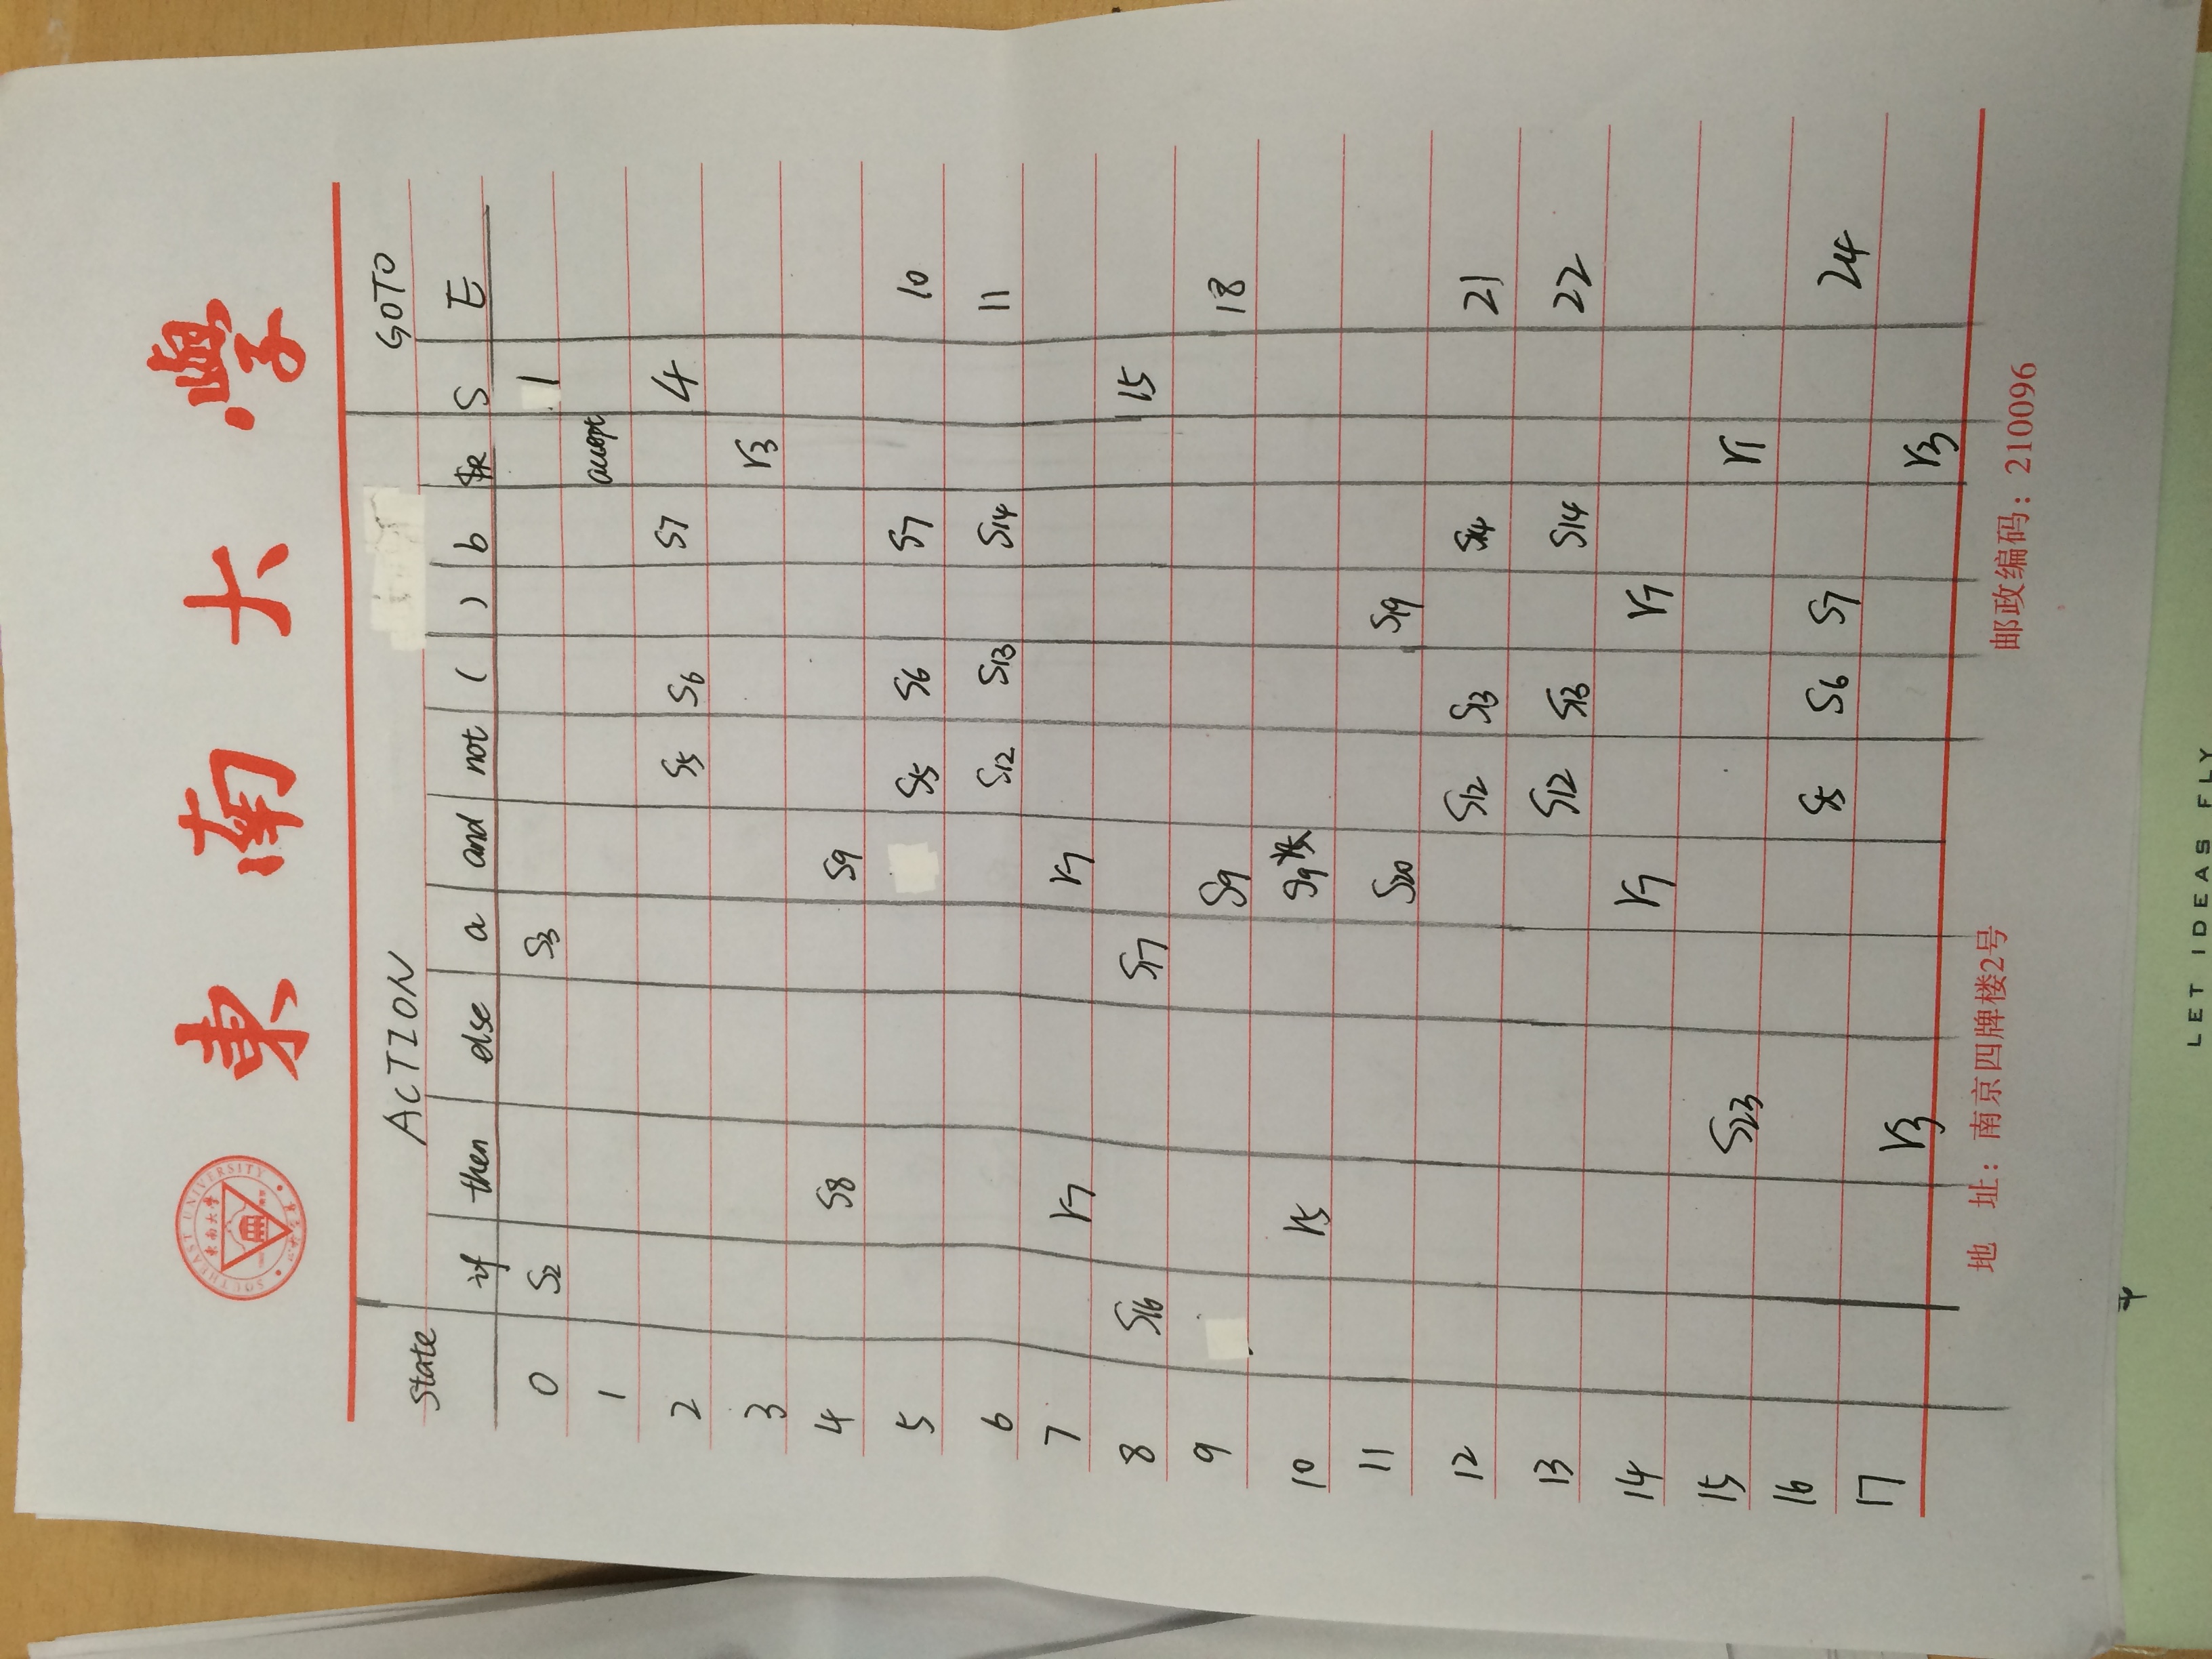 SOUTHEAST UNIVERSITY
東南大學
東南大學
ACTION GOTO
State
if then else a and not ( ) b $R S E
0 S2 S3 1
1 accept
2 S5 S6 S7 4
3 r3
4 S8 S9
5 S5 S6 S7 10
6 S12 S13 S14 11
7 r7 r7
8 S16 S17 15
9 S9 18
10 r5 S9
11 S20 S19
12 S12 S13 S14 21
13 S12 S13 S14 22
14 r7 r7
15 S23 r1
16 S5 S6 S7 24
17 r3 r3
地 址：南京四牌楼2号 邮政编码：210096
LET IDEAS FLY